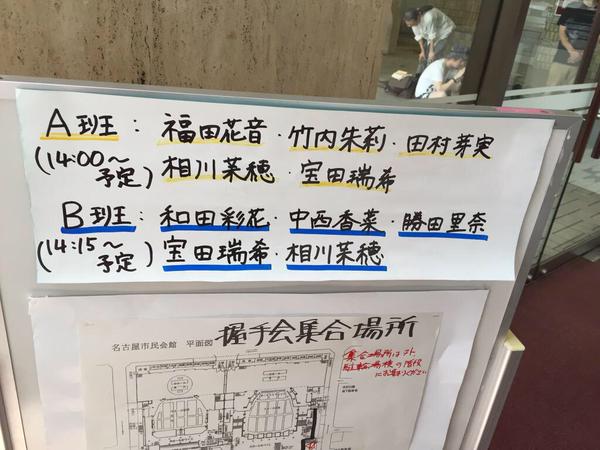 A班：福田花音・竹内朱莉・田村芽実
(14:00〜予定) 相川茉穂・宝田瑞希
B班：和田彩花・中西香菜・勝田里奈
(14:15〜予定) 宝田瑞希・相川茉穂
握手会集合場所
名古屋市民会館 平面図
集合場所はコト
駐輪場横の階段
にお集まりください